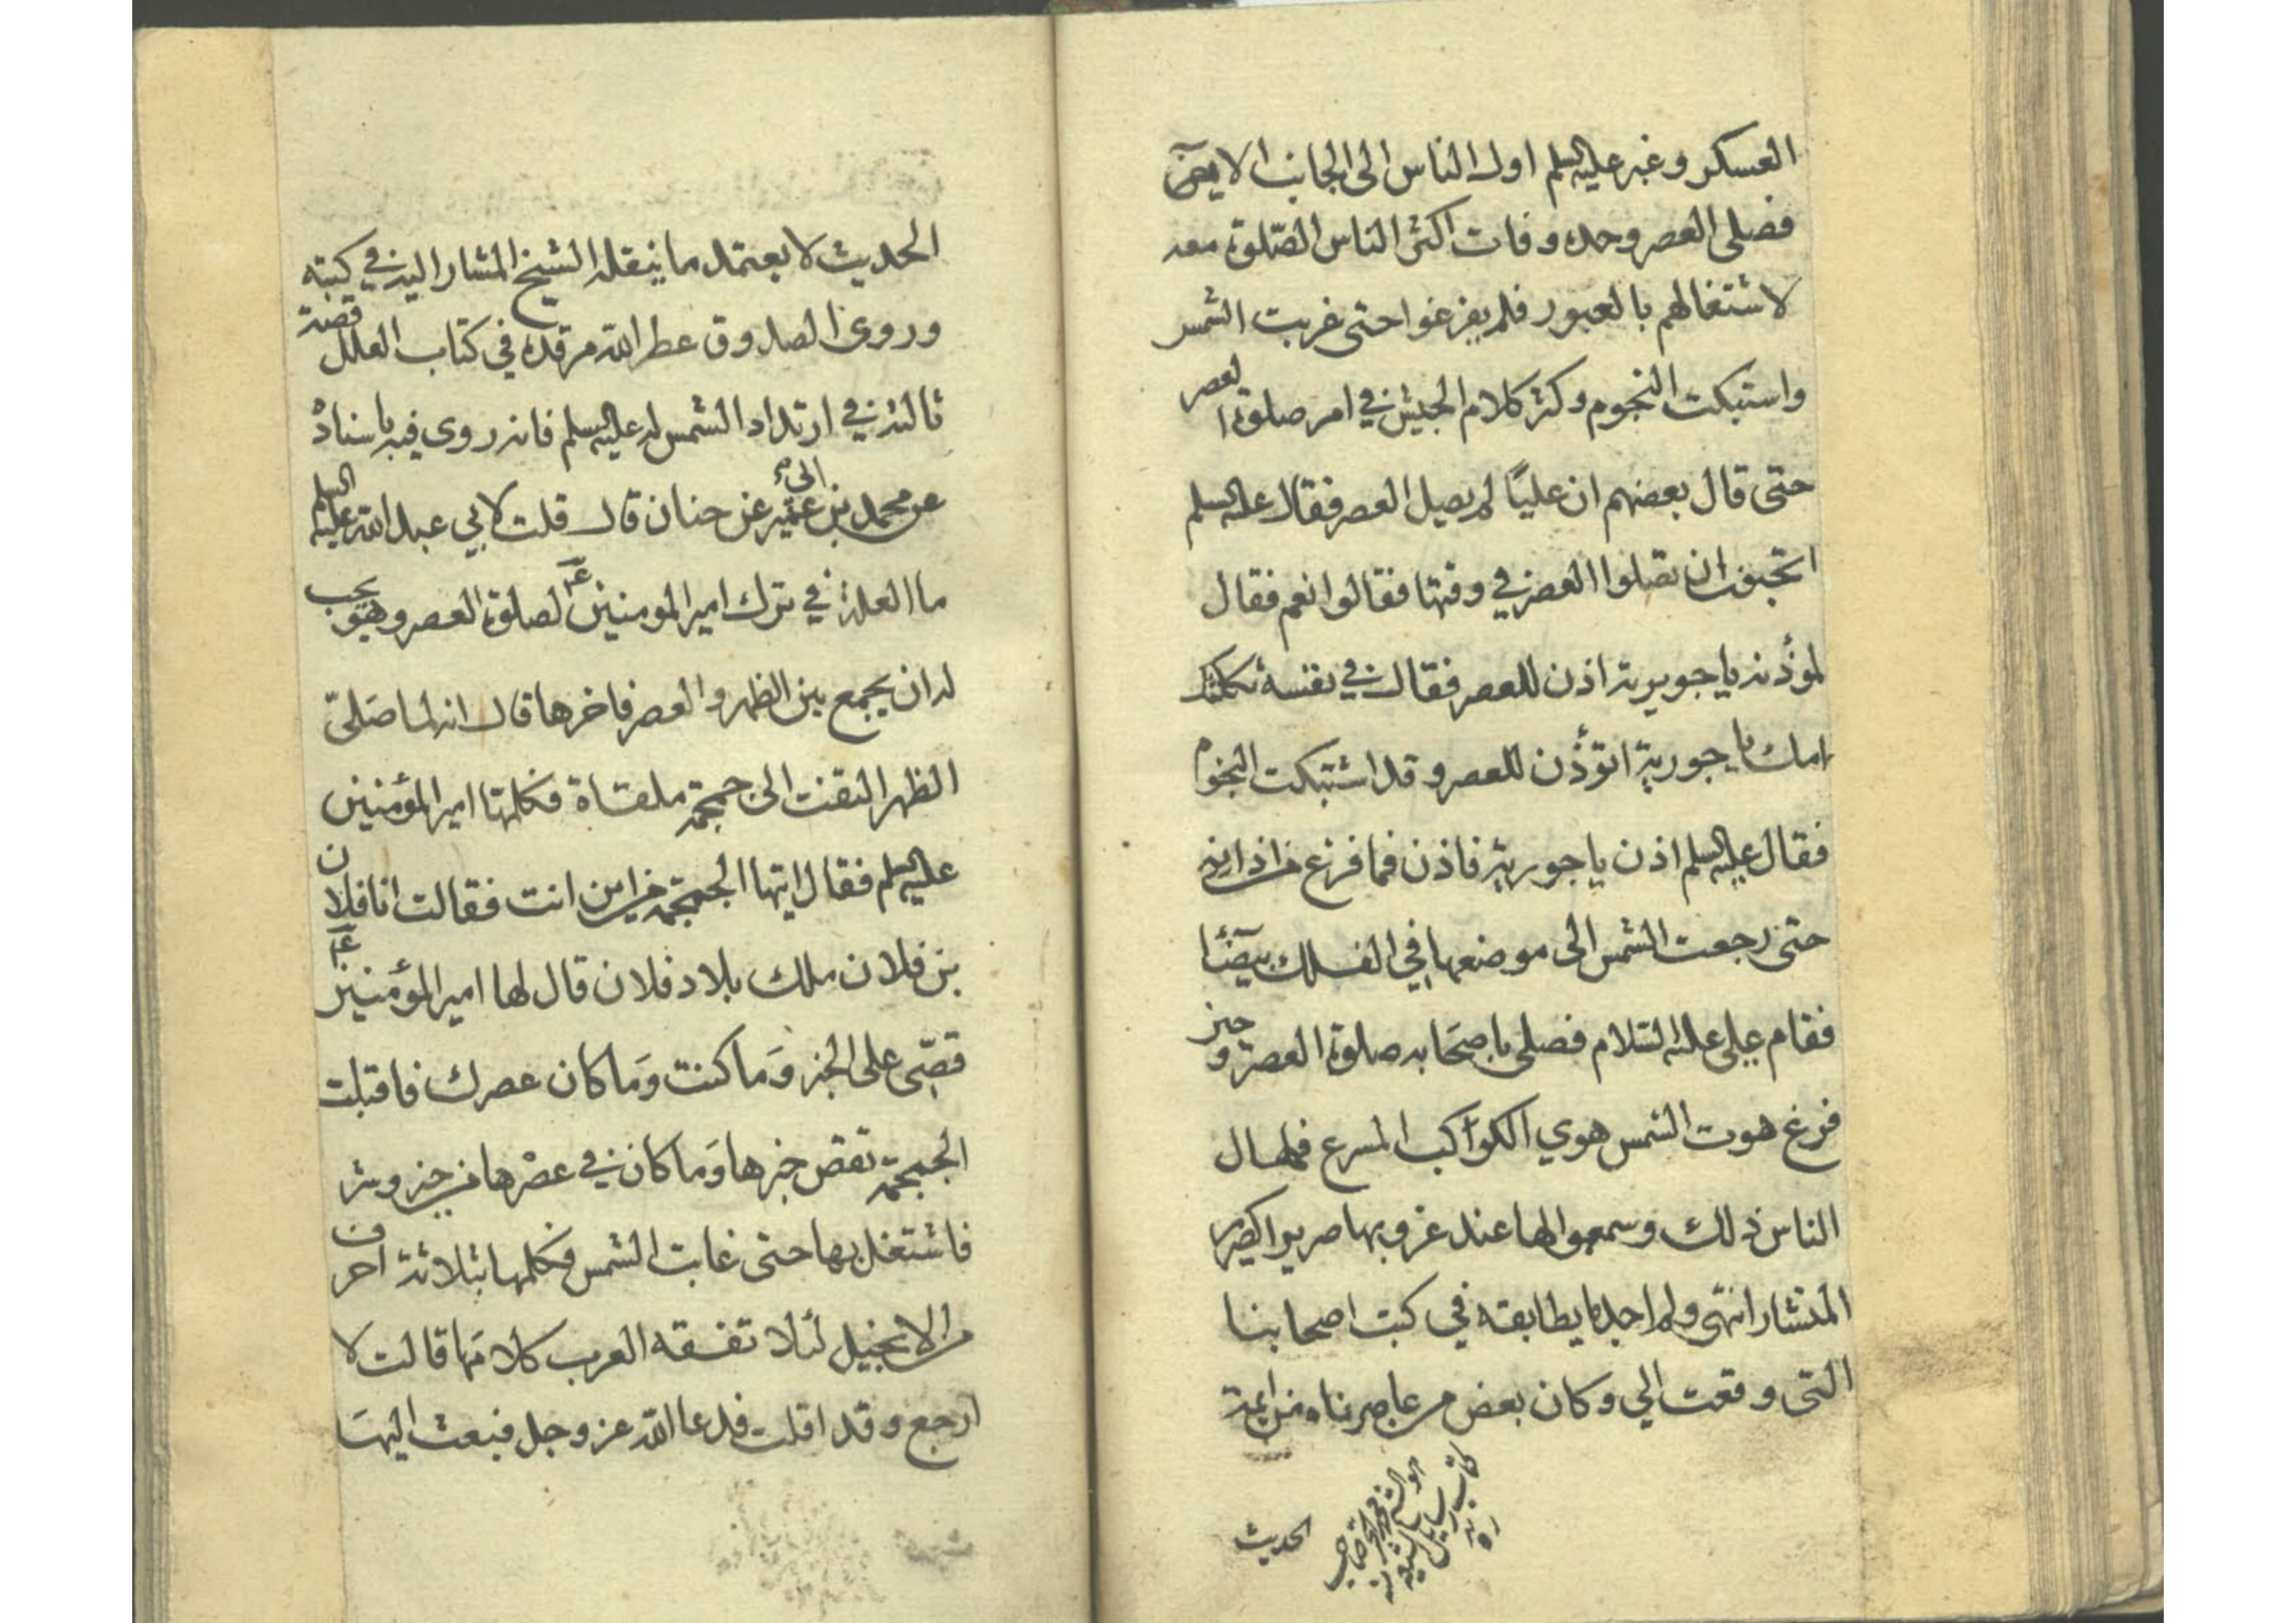 العسكر وعبر عليه السلم اول الناس الى الجانب الايمن
فصلى العصر وحده وفات اكثر الناس الصّلوة معه
لاشتغالهم بالعبور فلم يفرغوا حتى غربت الشمس
واستبكت النجوم وكثر كلام الجيش في امر صلوة العصر
حتى قال بعضهم ان عليًا لم يصل العصر فقال عليه السلم
اتحبون ان تصلوا العصر في وقتها فقالوا نعم فقال
لمؤذنه يا جويرية اذن للعصر فقال في نفسه ثكلتك
امك يا جويرية اتؤذن للعصر وقد اشتبكت النجوم
فقال عليه السلم اذن يا جويرية فاذن فما فرغ من اذانه
حتى رجعت الشمس الى موضعها في الفلك بيضا
فقام علي عليه السلام فصلى باصحابه صلوة العصر وحين
فرغ هوت الشمس هوي الكواكب المسرع فهال
الناس ذلك وسمعوا لها عند غروبها صريرا كصرير
المنشار انتهى ولم اجد ما يطابقه في كتب اصحابنا
التي وقعت الي وكان بعض من عاصرناه من ائمة
هو الشيخ محمد الحر صاحب
كتاب وسايل الشيعة
ره
الحديث
الحديث لا يعتمد ما ينقله الشيخ المشار اليه في كتبه
وروى الصدوق عطر الله مرقده في كتاب العلل قصة
ثالثه في ارتداد الشمس له عليه السلم فانه روى فيه باسناده
عن محمد بن ابي عمير عن حنان قال قلت لابي عبد الله عليه السلم
ما العلة في ترك امير المومنين ع لصلوة العصر وهو يجب
له ان يجمع بين الظهر والعصر فاخرها قال انه لما صَلىّ
الظهر التفت الى جمجمة ملقاة فكلمها امير المؤمنين
عليه السلم فقال ايتها الجمجمة من اين انت فقالت انا فلان
بن فلان ملك بلاد فلان قال لها امير المؤمنين ع
قصّي على الخبر وَما كنت وَما كان عصرك فاقبلت
الجمجمة تقص خبرها وَما كان في عصْرها من خير وشر
فاشتغل بها حتى غابت الشمس فكلمها بثلاثة احرف
من الانجيل لئلا تفقه العرب كلامَها قالت لا
ارجع وقد افلت فدعا الله عز وجل فبعث اليهَا